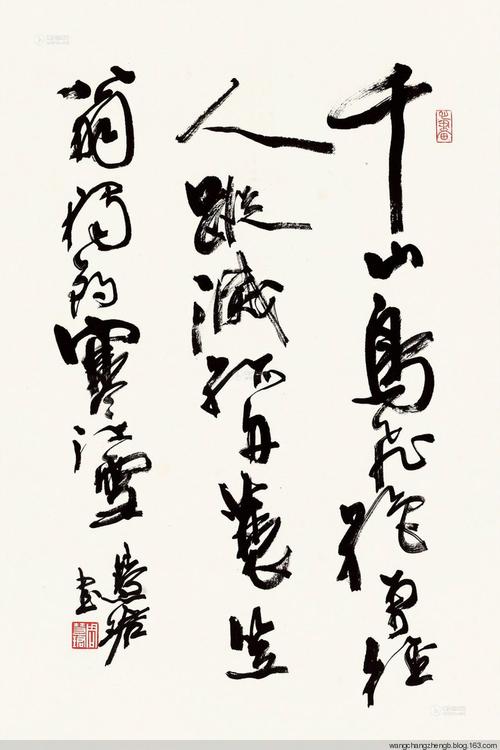 千山鳥飛絕萬徑
人蹤滅孤舟蓑笠
翁獨釣寒江雪
慧珺
书
wangchangzhengb.blog.163.com